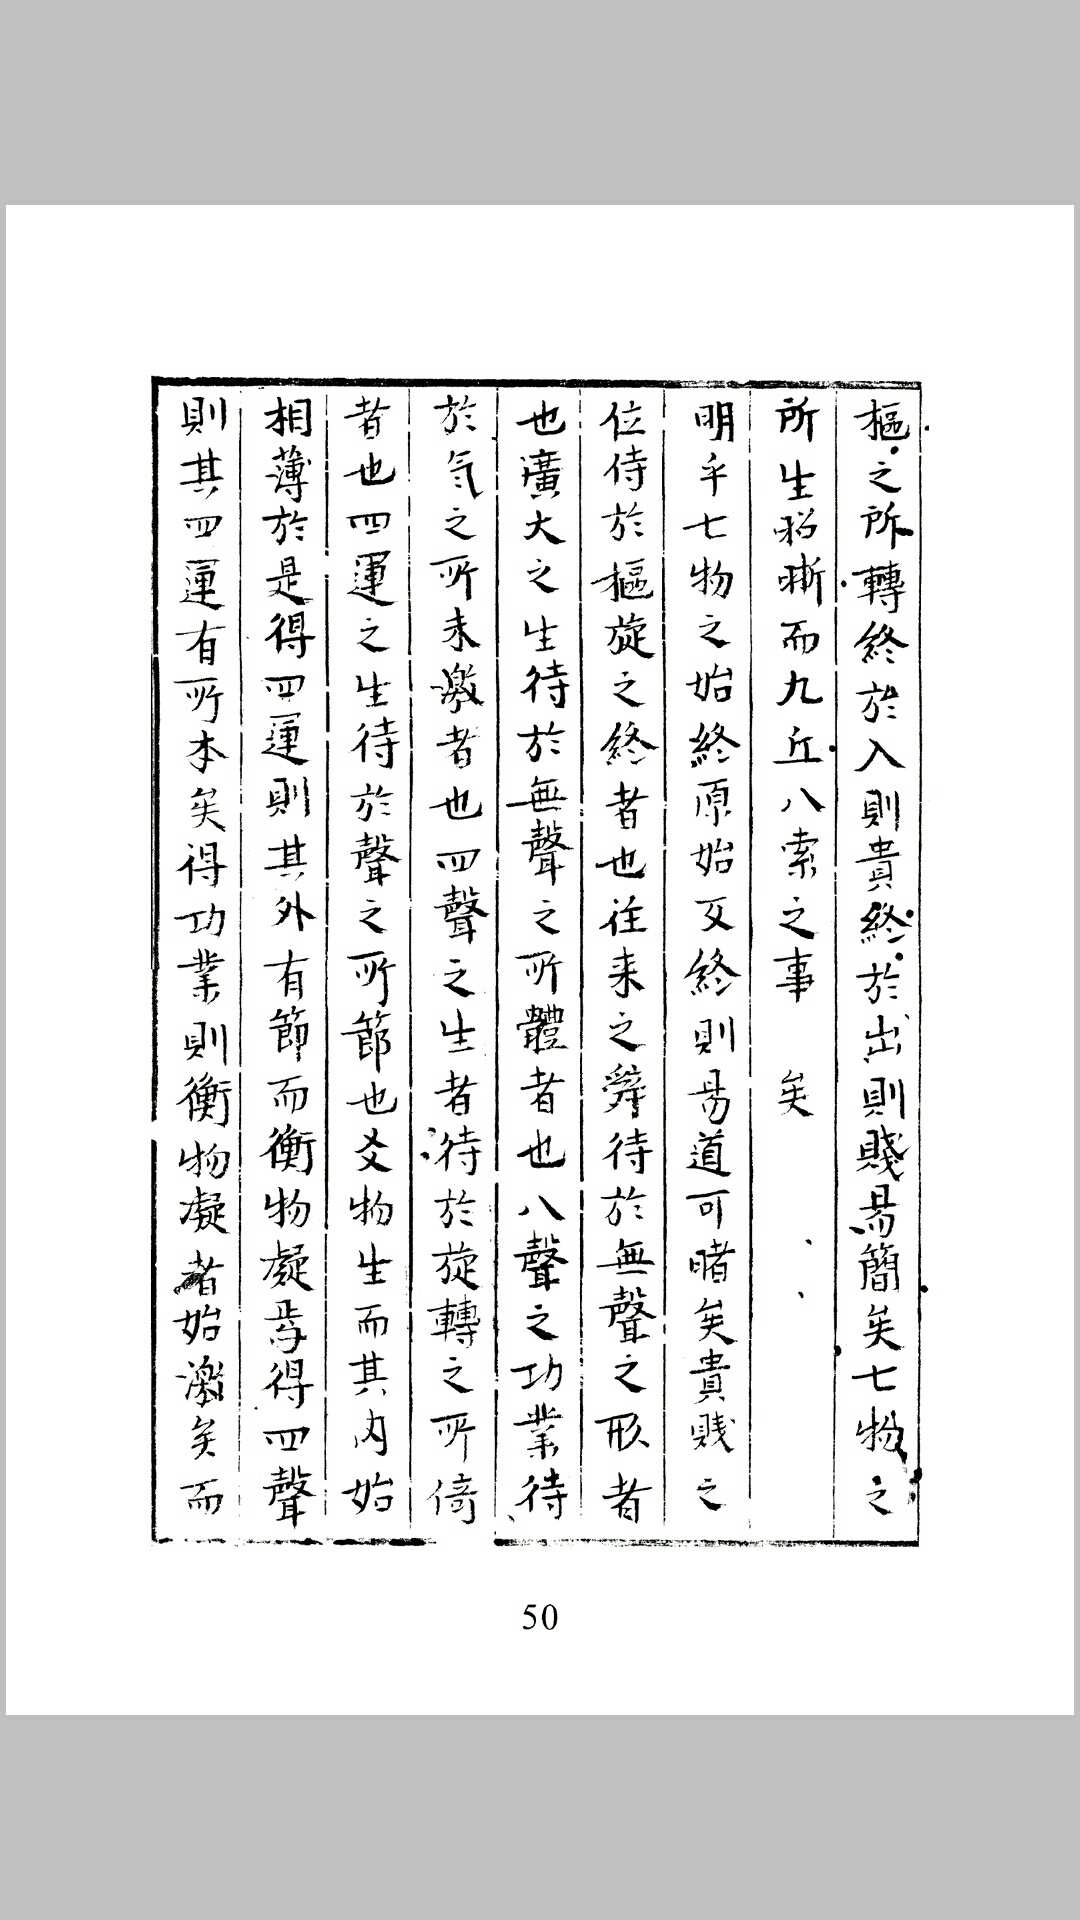 樞之所轉終於入則貴終於出則賤易簡矣七物之
所生昭晣而九丘八索之事矣
明乎七物之始終原始反終則易道可睹矣貴賤之
位待於樞旋之終者也往来之辤待於無聲之形者
也廣大之生待於無聲之所體者也八聲之功業待
於氣之所未激者也四聲之生者待於旋轉之所倚
者也四運之生待於聲之所節也爻物生而其内始
相薄於是得四運則其外有節而衡物凝焉得四聲
則其四運有所本矣得功業則衡物凝者始激矣而
50